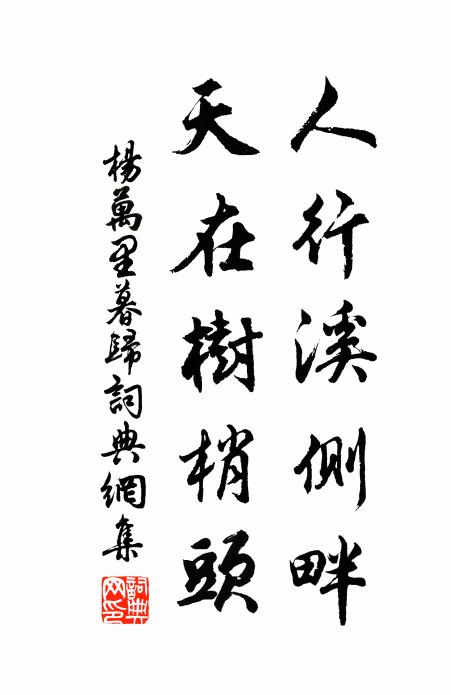 人行溪側畔
天在樹梢頭
楊萬里暮歸詞典網集
詞典